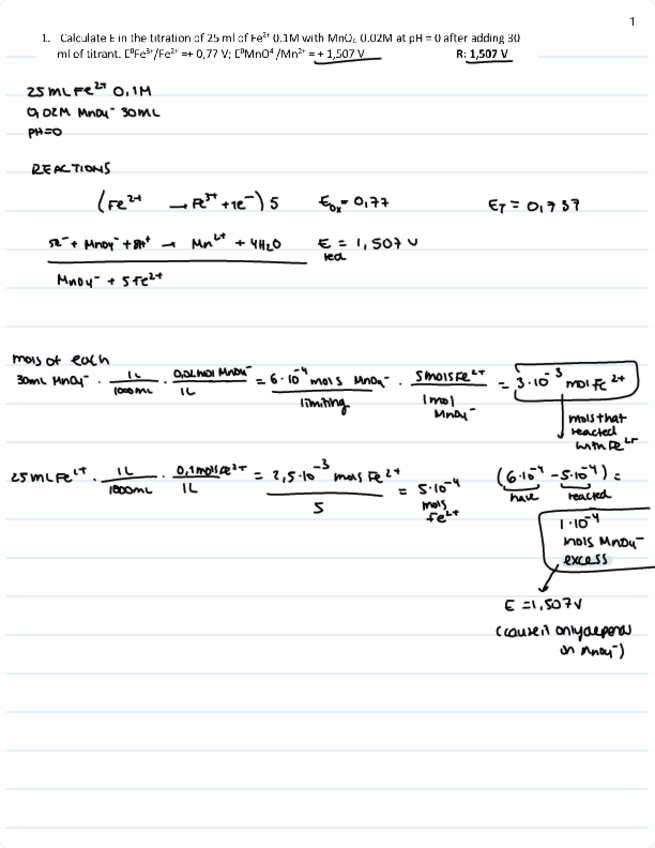 1
1. Calculate E in the titration of 25 ml of Fe²⁺ 0.1M with MnO₄ 0.02M at pH = 0 after adding 30
ml of titrant. E⁰Fe³⁺/Fe²⁺ =+ 0,77 V; E⁰MnO⁴⁻/Mn²⁺ = + 1,507 V R: 1,507 V
25 mL Fe²⁺ 0,1M
0,02M MnO₄⁻ 30mL
PH=0
REACTIONS
(Fe²⁺ → Fe³⁺ + 1e⁻) 5 Eox = 0,77 ET = 0,737
5e⁻ + MnO₄⁻ + 8H⁺ → Mn²⁺ + 4H₂O E red = 1,507 V
MnO₄⁻ + 5Fe²⁺
mols of each
30mL MnO₄⁻ · 1L/1000mL · 0,02 mol MnO₄⁻/1L = 6·10⁻⁴ mols MnO₄⁻ · 5 mols Fe²⁺/1 mol MnO₄⁻ = 3·10⁻³ mol Fe²⁺
limiting
mols that
reacted
with Fe²⁺
25 mL Fe²⁺ · 1L/1000mL · 0,1 mols Fe²⁺/1L = 2,5·10⁻³ mols Fe²⁺/5 = 5·10⁻⁴ mols Fe²⁺ (6·10⁻⁴ - 5·10⁻⁴) =
have reacted
1·10⁻⁴
mols MnO₄⁻
excess
E = 1,507 V
(cause it only depends
on MnO₄⁻)